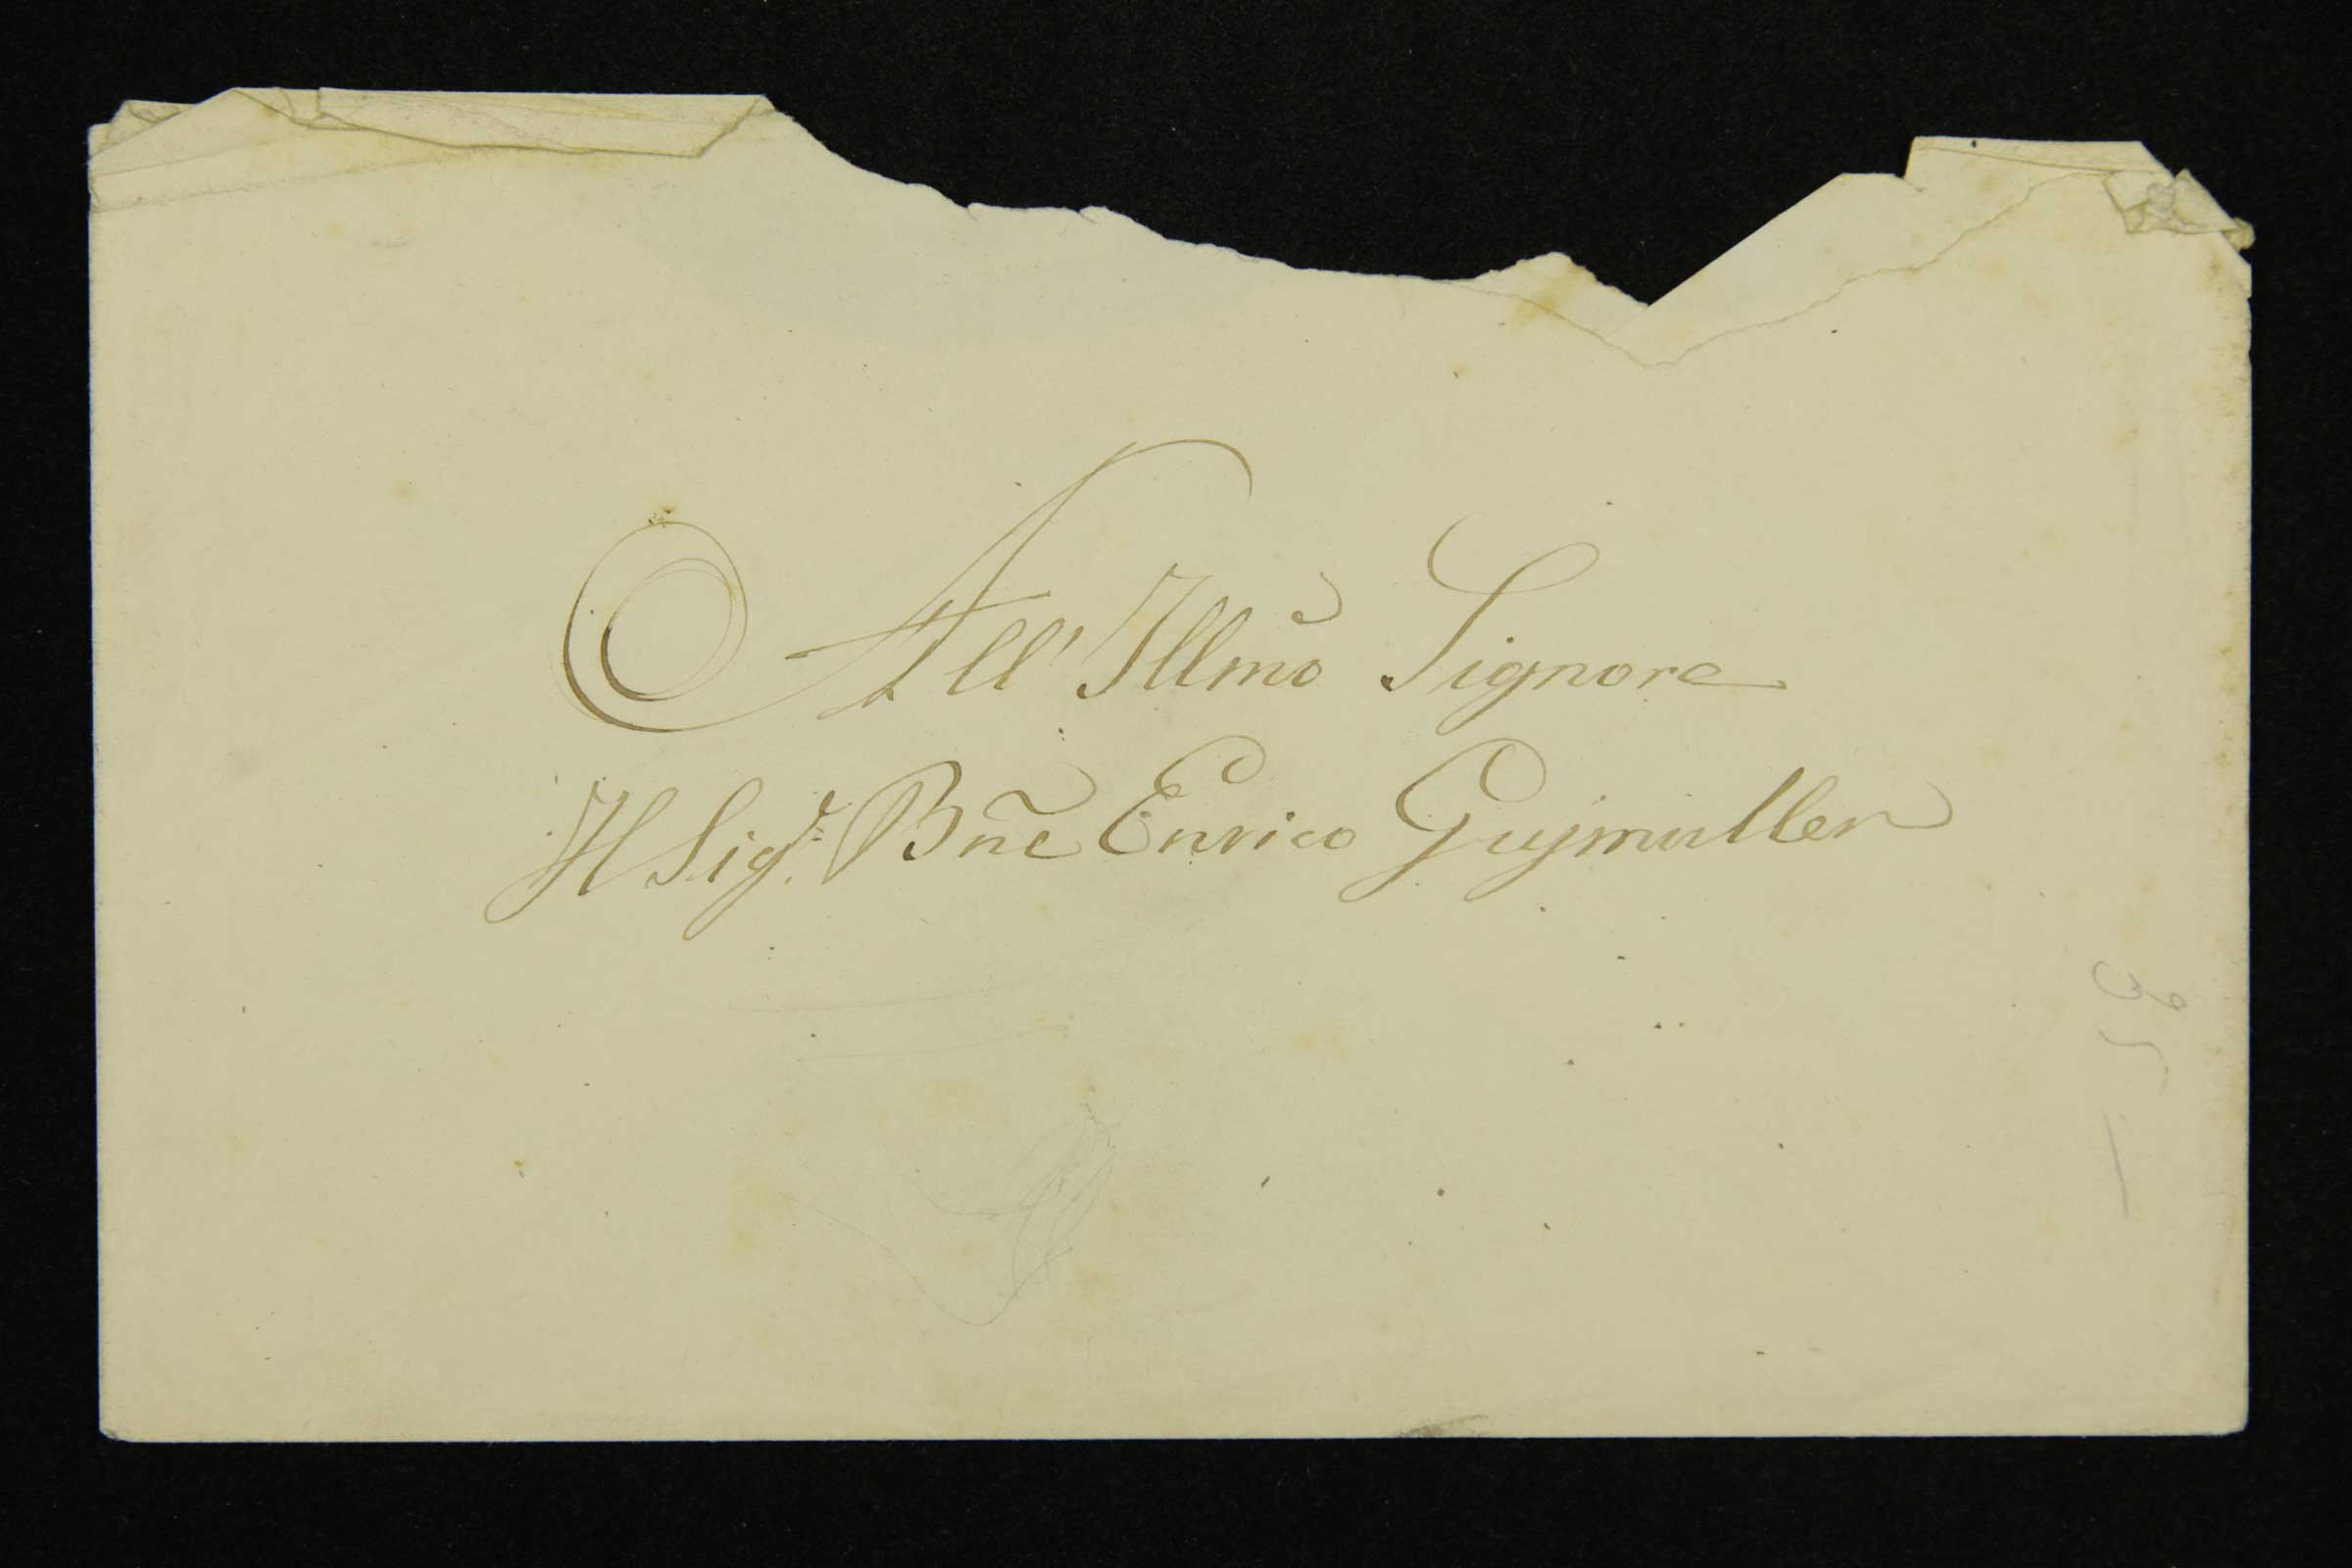 All' Illmo Signore
Il Sigr. Bne Enrico Gujmuller
35